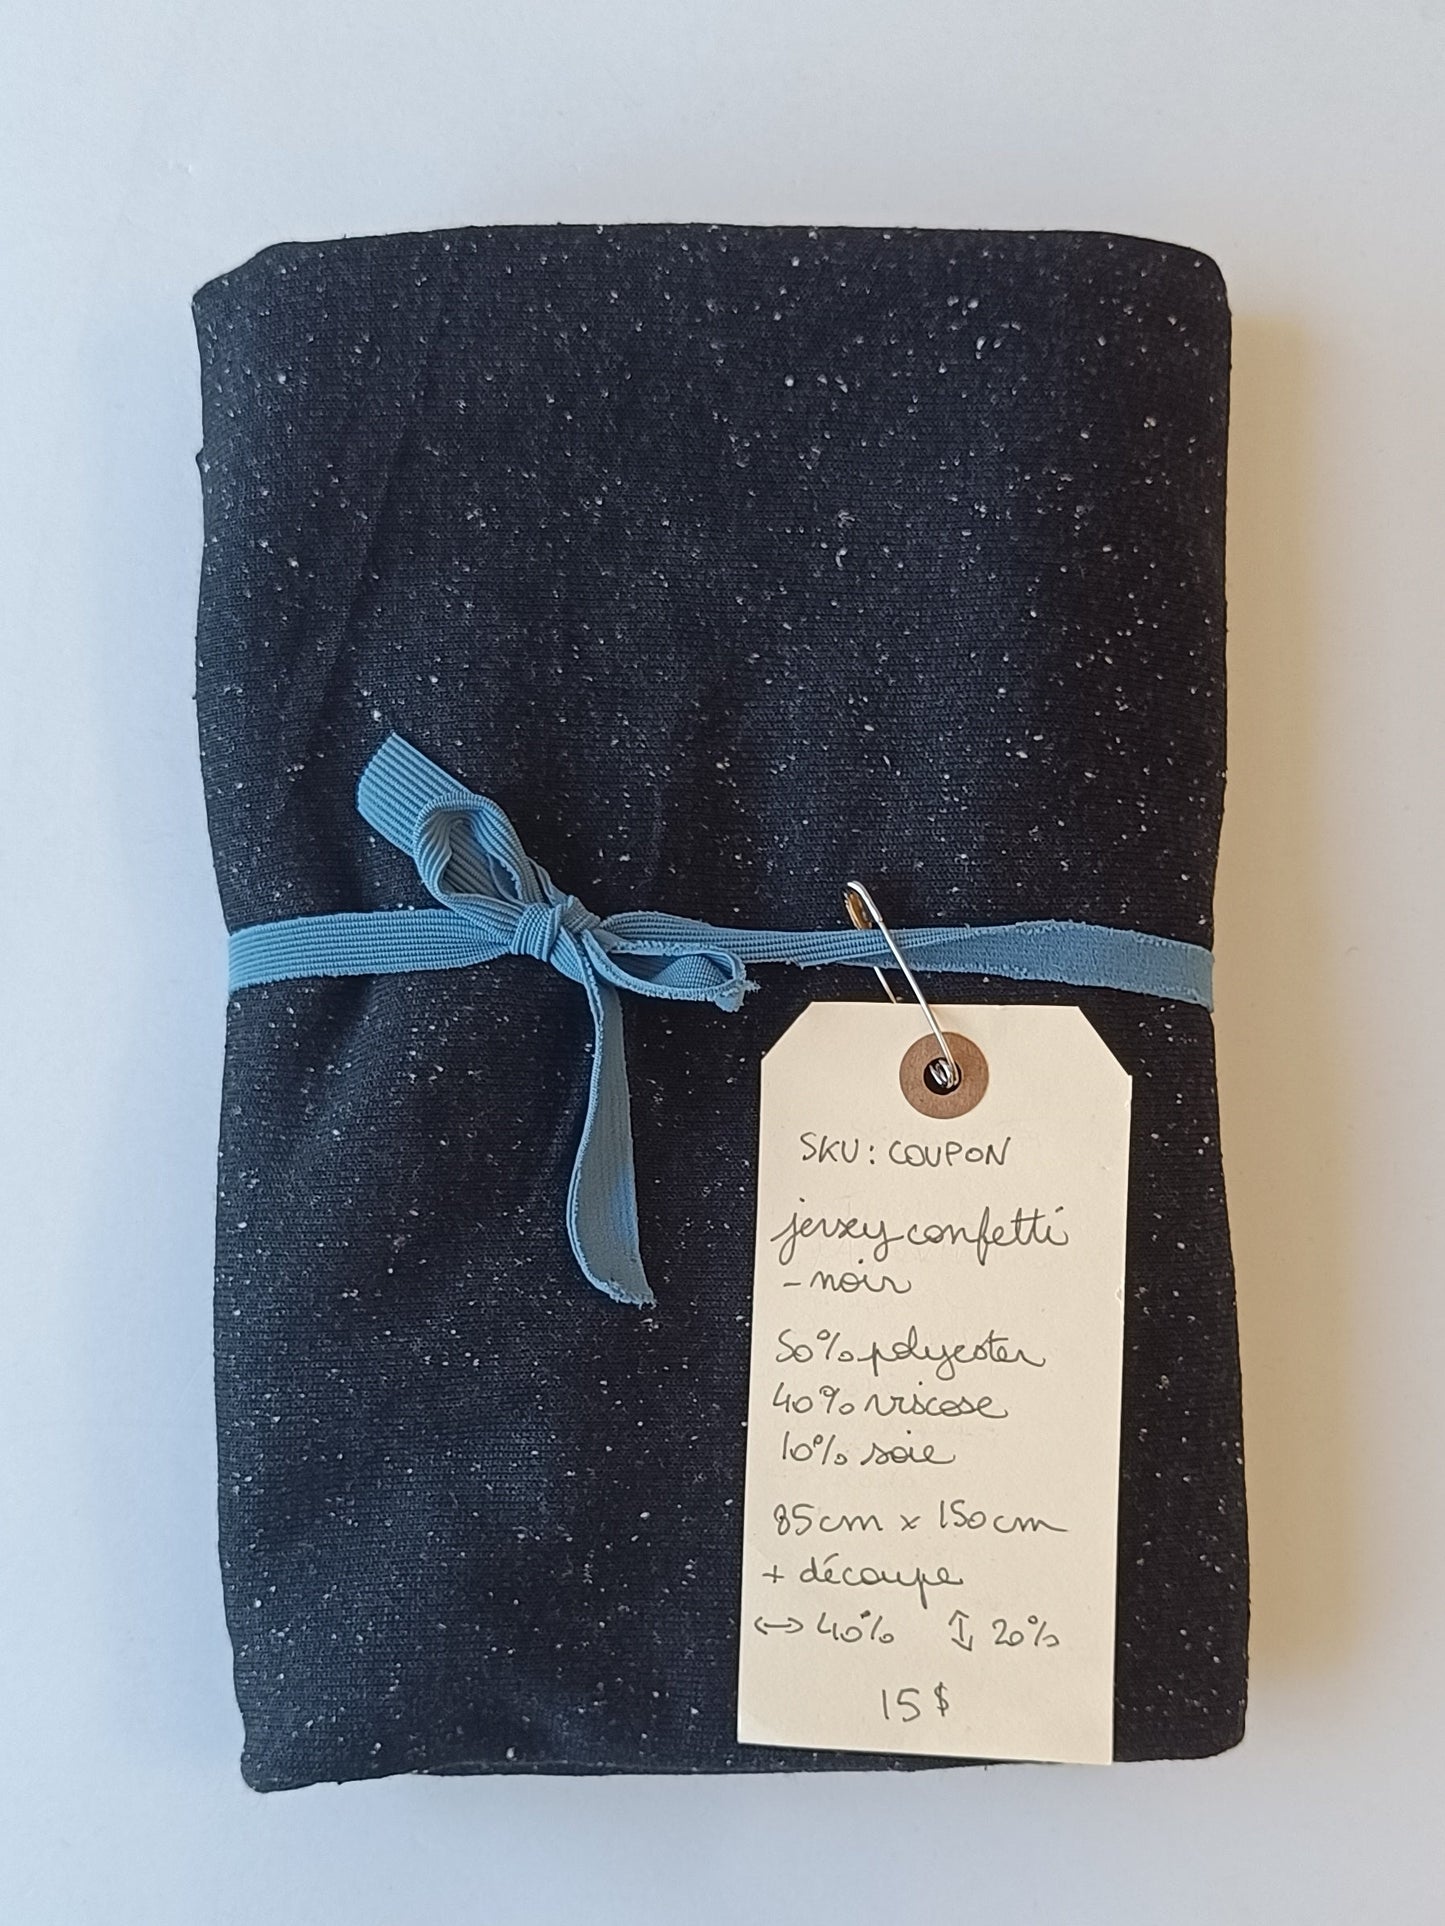 SKU: COUPON
jersey confetti
- noir
50% polyester
40% viscose
10% soie
85cm x 150cm
+ découpe
↔ 40% ↕ 20%
15$